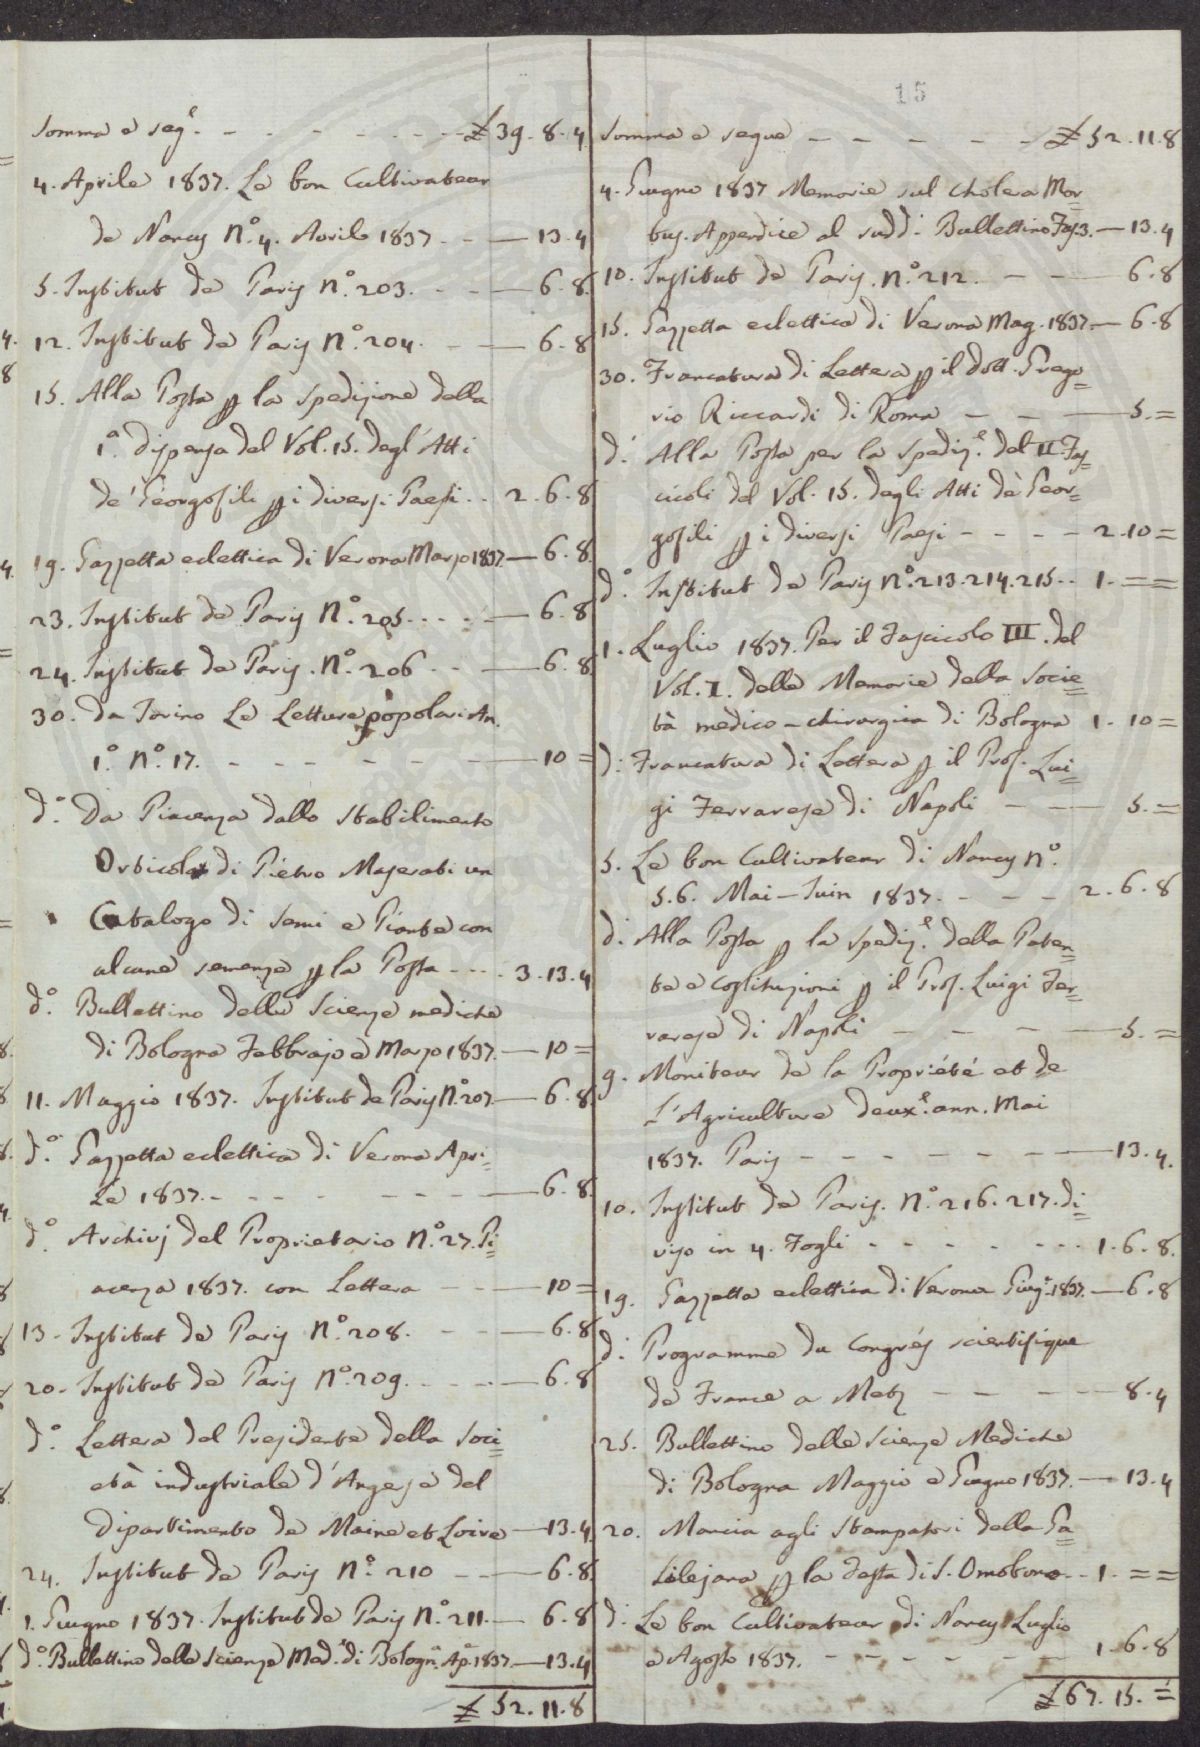 15
Somma e seg.e - - - - - - - £ 39. 8. 4
4. Aprile 1837. Le bon Cultivateur
de Nancy N.o 4. Avril 1837. - - 13. 4
5. Institut de Paris N.o 203. - - 6. 8
12. Institut de Paris N.o 204. - - 6. 8
15. Alla Posta p la spedizione della
1.a dispensa del Vol. 15. degl'Atti
de' Georgofili p i diversi Paesi. . 2. 6. 8
19. Gazzetta eclettica di Verona Marzo 1837. - 6. 8
23. Institut de Paris N.o 205. . . . - 6. 8
24. Institut de Paris. N.o 206 - - 6. 8
30. da Torino Le Letture popolari An.
1.o N.o 17. - - - - - - 10 =
d.o Da Piacenza dallo Stabilimento
Orticola di Pietro Maserati un
Catalogo di Semi e Piante con
alcune semenze p la Posta - - - - 3. 13. 4
d.o Bullettino delle Scienze mediche
di Bologna Febbrajo e Marzo 1837. - 10 =
11. Maggio 1837. Institut de Paris N.o 207. - 6. 8
d.o Gazzetta eclettica di Verona Apri=
le 1837. - - - - - - - 6. 8
d.o Archivj del Proprietario N.o 27. Pi=
acenza 1837. con Lettera - - - 10 =
13. Institut de Paris N.o 208. - - 6. 8
20. Institut de Paris N.o 209. - - - 6. 8
d.o Lettera del Presidente della Soci=
età industriale d'Angers e del
Dipartimento de Maine et Loire - 13. 4
24. Institut de Paris N.o 210 - - 6. 8
1. Giugno 1837. Institut de Paris N.o 211. - 6. 8
d.o Bullettino delle Scienze Med.e di Bologn.a Ap.e 1837. - 13. 4
£ 52. 11. 8
Somma e segue - - - - - £ 52. 11. 8
4. Giugno 1837 Memorie sul Cholera Mor=
bus. Appendice al sudd.o Bullettino Fas. 3. - 13. 4
10. Institut de Paris. N.o 212. - - 6. 8
15. Gazzetta eclettica di Verona Mag. 1837 - 6. 8
30. Francatura di Lettera p il Dott. Grego=
rio Riccardi di Roma - - - 5. =
d.o Alla Posta per la spediz.e del II. Fas=
cicoli del Vol. 15. degli Atti de' Geor=
gofili p i diversi Paesi - - - - 2. 10 =
d.o Institut de Paris N.o 213. 214. 215. . 1. = =
1. Luglio 1837. Per il Fascicolo III. del
Vol. I. delle Memorie della Socie=
tà medico-chirurgica di Bologna 1. 10 =
d.o Francatura di Lettera p il Prof. Lui=
gi Ferrarese di Napoli - - 5. =
5. Le bon Cultivateur di Nancy N.o
5. 6. Mai - Juin 1837. - - - 2. 6. 8
d.o Alla Posta p la spediz.e della Paten=
te e Costituzioni p il Prof. Luigi Fer=
rarese di Napoli - - - - 5. =
9. Moniteur de la Propriété et de
L'Agriculture deux.e ann. Mai
1837. Paris - - - - - - - 13. 4.
10. Institut de Paris. N.o 216. 217. di=
viso in 4. Fogli - - - - - - - 1. 6. 8.
19. Gazzetta eclettica di Verona Giug.o 1837. - 6. 8
d.o Programme du Congrés scientifique
de France a Metz - - - - 8. 4
25. Bullettino delle Scienze Mediche
di Bologna Maggio e Giugno 1837. - 13. 4
20. Mancia agli Stampatori della Ga=
lilejana p la Festa di S. Omobono. . 1. = =
d.o Le bon Cultivateur di Nancy Luglio
e Agosto 1837. - - - - - - 1. 6. 8
£ 67. 15. =